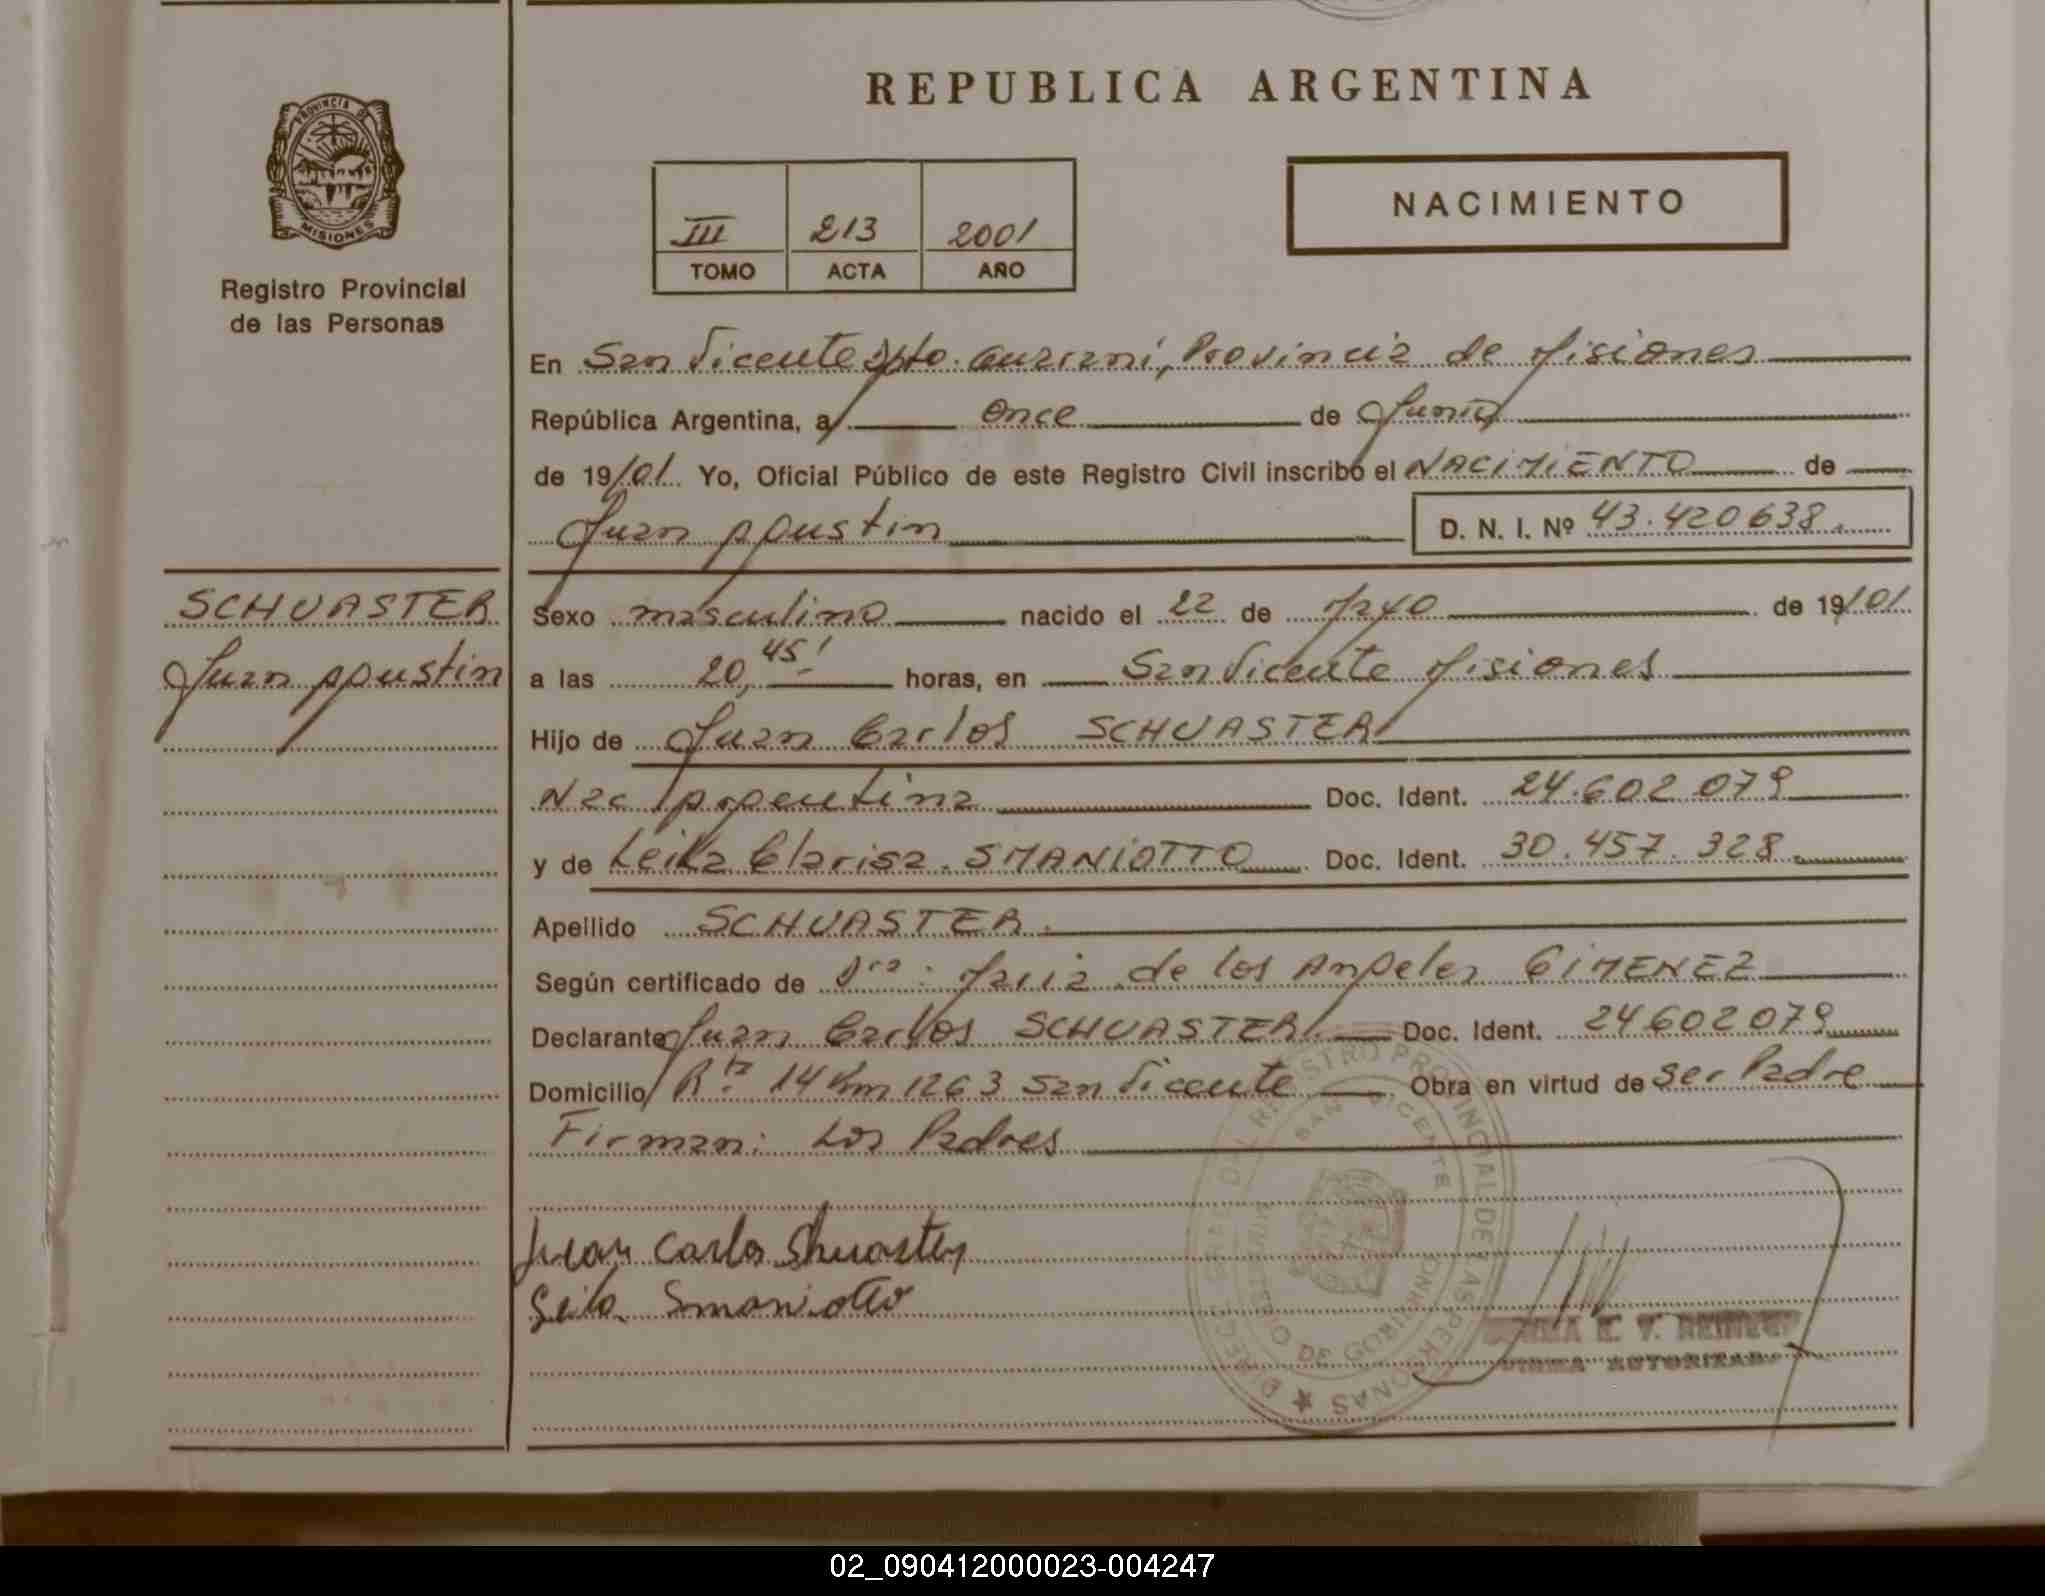 REPUBLICA ARGENTINA
PROVINCIA DE
MISIONES
Registro Provincial
de las Personas
III 213 2001
TOMO ACTA AÑO
NACIMIENTO
En San Vicente Dpto. Guaraní, Provincia de Misiones
República Argentina, a once de Junio
de 19/01. Yo, Oficial Público de este Registro Civil inscribo el NACIMIENTO de
Juan Agustin D. N. I. Nº 43.420638.
SCHUASTER
Juan Agustin
Sexo masculino nacido el 22 de Mayo de 19/01.
a las 20,45' horas, en San Vicente Misiones
Hijo de Juan Carlos SCHUASTER
Nac Argentina Doc. Ident. 24.602.079
y de Leila Clarisa SMANIOTTO Doc. Ident. 30.457.328.
Apellido SCHUASTER.
Según certificado de Dra: Maria de los Angeles GIMENEZ
Declarante Juan Carlos SCHUASTER. Doc. Ident. 24602079
Domicilio Rta. 14 Km 1263 San Vicente Obra en virtud de ser Padre
Firman: Los Padres
Juan Carlos Shuaster
Leila Smaniotto
REGISTRO PROVINCIAL DE LAS PERSONAS
SAN VICENTE
E. V.
FIRMA AUTORIZADA
02_090412000023-004247